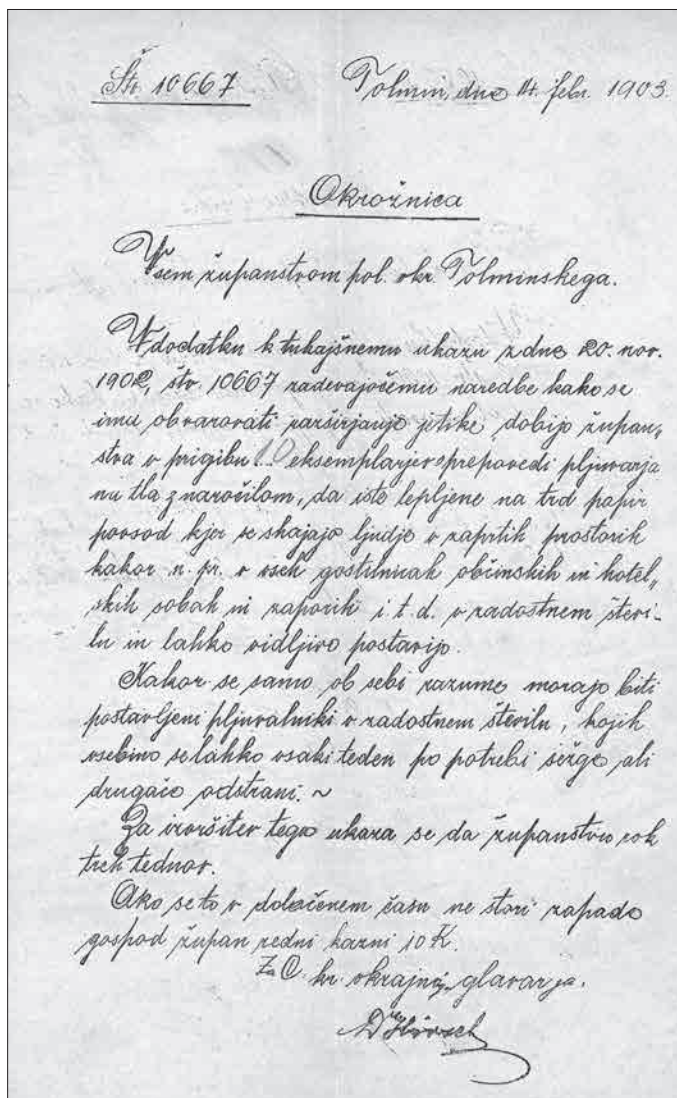 Štv. 10667 Tolmin, dne 14. febr. 1903.
Okrožnica
Vsem županstvom pol. okr. Tolminskega.
V dodatku k tukajšnemu ukazu z dne 20. nov.
1902, štv. 10667 zadevajočemu naredbe kako se
ima obvarovati razširjanje jitike, dobijo župan„
stva v prigibu 10 eksemplarjev prepovedi pljuvanja
na tla z naročilom, da iste lepljene na trd papir
povsod kjer se shajajo ljudje v zaprtih prostorih
kakor n. pr. v vseh gostilnicah občinskih in hotel„
skih sobah in zaporih i. t. d. v zadostnem števi-
lu in lahko vidljivo postavijo.
Kakor se samo ob sebi razume morajo biti
postavljeni pljuvalniki v zadostnem številu, kojih
vsebino se lahko vsaki teden po potrebi sežge ali
drugače odstrani. ~
Za izvršitev tega ukaza se da županstvu rok
treh tednov.
Ako se to v določenem času ne stori zapade
gospod župan redni kazni 10 K.
Za C. kr. okrajnega glavarja.